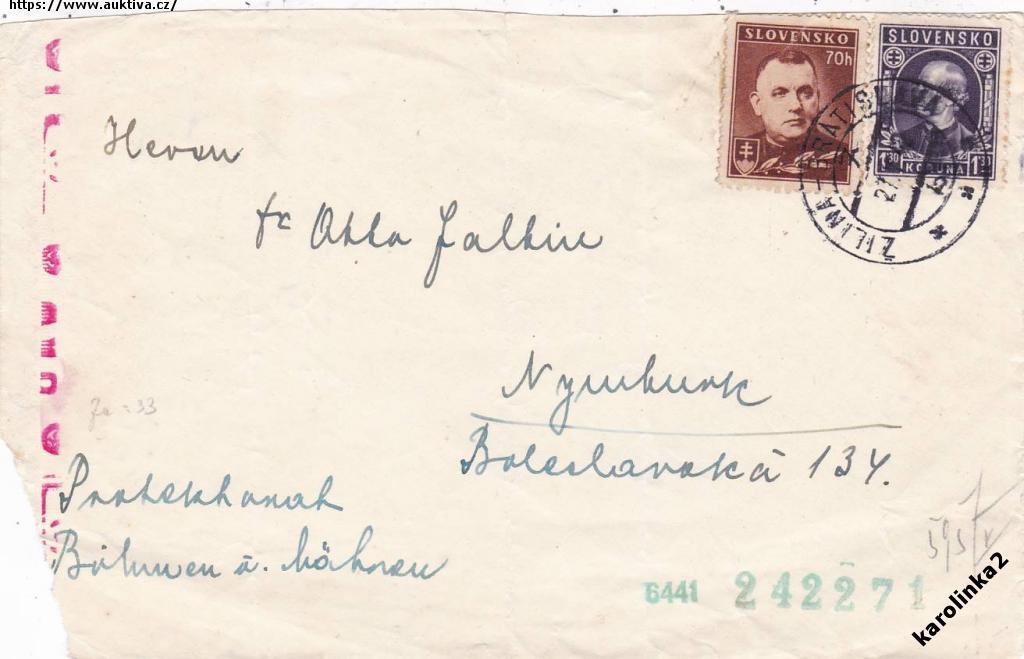 https://www.auktiva.cz/
SLOVENSKO
70h
SLOVENSKO
1'30 KORUNA 1'30
ŽILINA-BRATISLAVA
Herrn
Otto
Nymburk
Boleslavská 134.
Protektorat
Böhmen u. Mähren
6441 242271
karolinka2